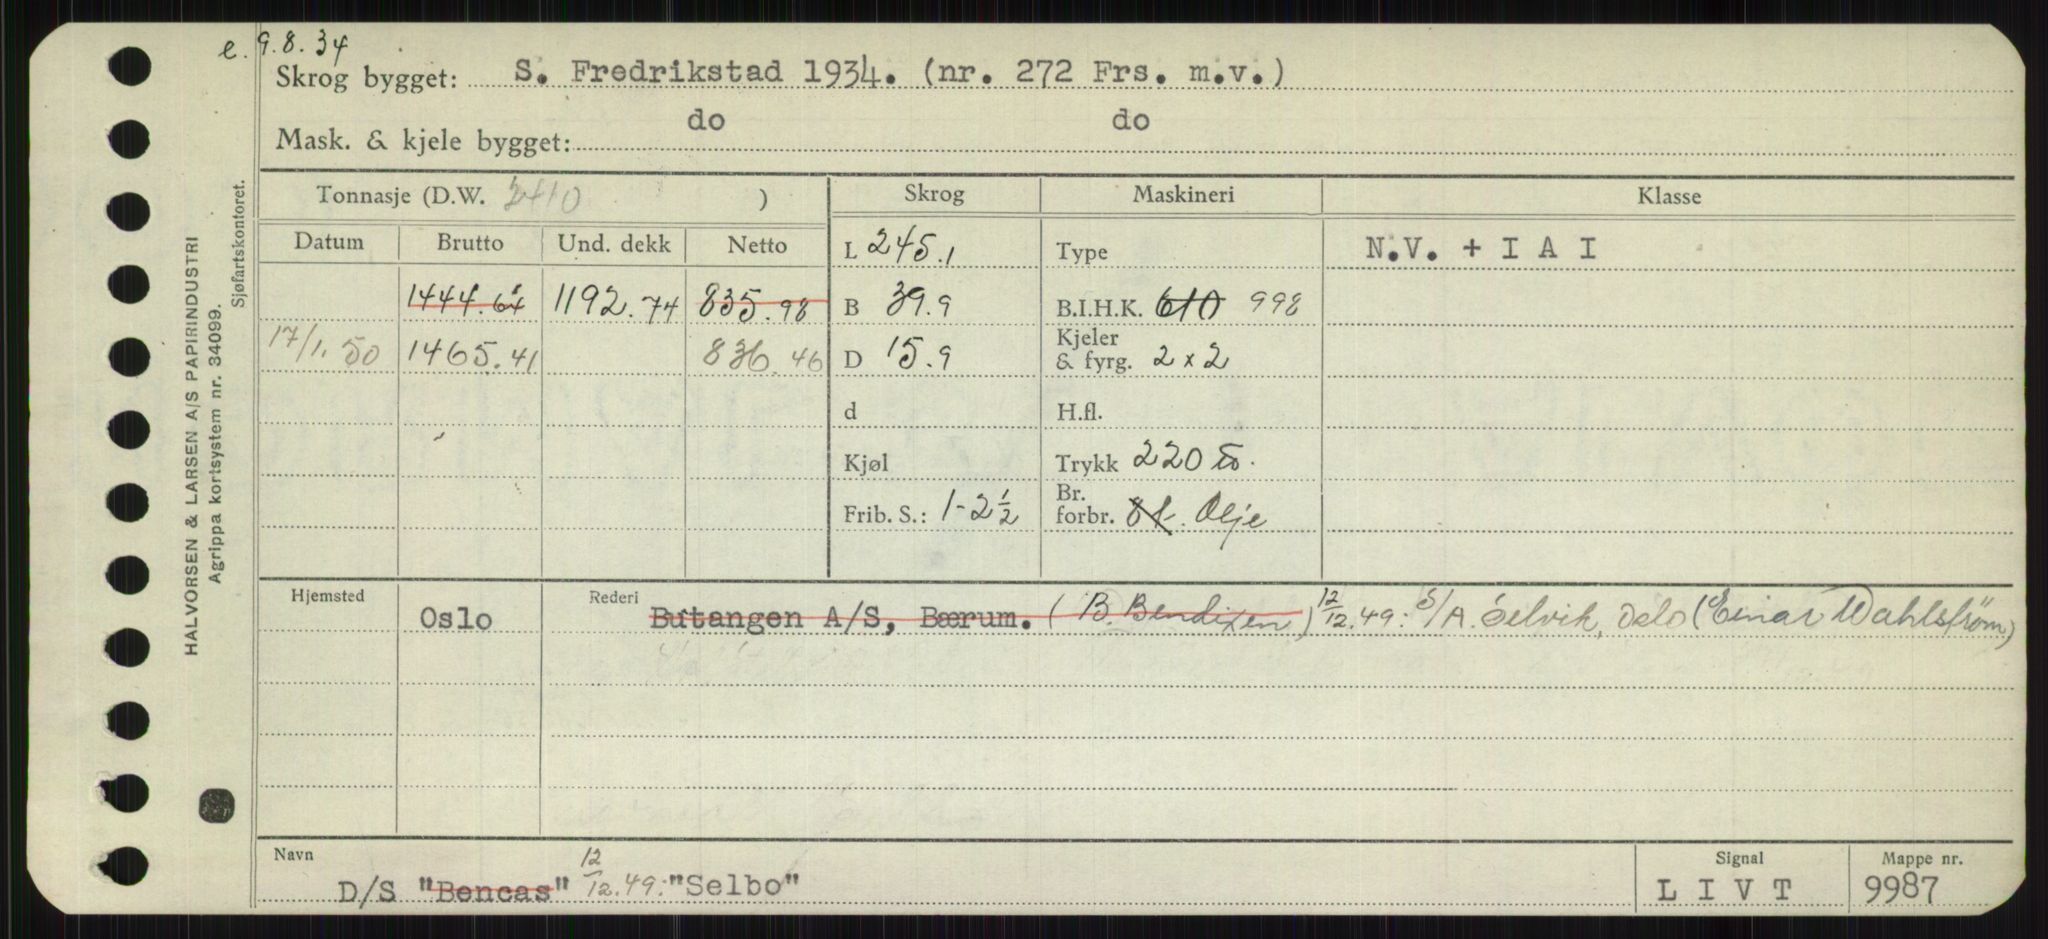 e. 9.8.34
Skrog bygget: S. Fredrikstad 1934. (nr. 272 Frs. m.v.)
Mask. & kjele bygget: do do
Tonnasje (D.W. 2410 ) Skrog Maskineri Klasse
Datum Brutto Und. dekk Netto L 245.1 Type N.V. + I A I
1444.64 1192.74 835.98 B 39.9 B.I.H.K. 610 998
17/1.50 1465.41 836.46 D 15.9 Kjeler & fyrg. 2 x 2
d H.fl.
Kjøl Trykk 220
Frib. S.: 1-2½ Br. forbr. Olje
Hjemsted Oslo Rederi Butangen A/S, Bærum. (B. Bendixen) 12/12.49: S/A. Selvik, Oslo (Einar Wahlstrøm)
Navn D/S "Bencas" 12/12.49: "Selbo" Signal L I V T Mappe nr. 9987
HALVORSEN & LARSEN A/S PAPIRINDUSTRI
Agrippa kortsystem nr. 34099.
Sjøfartskontoret.